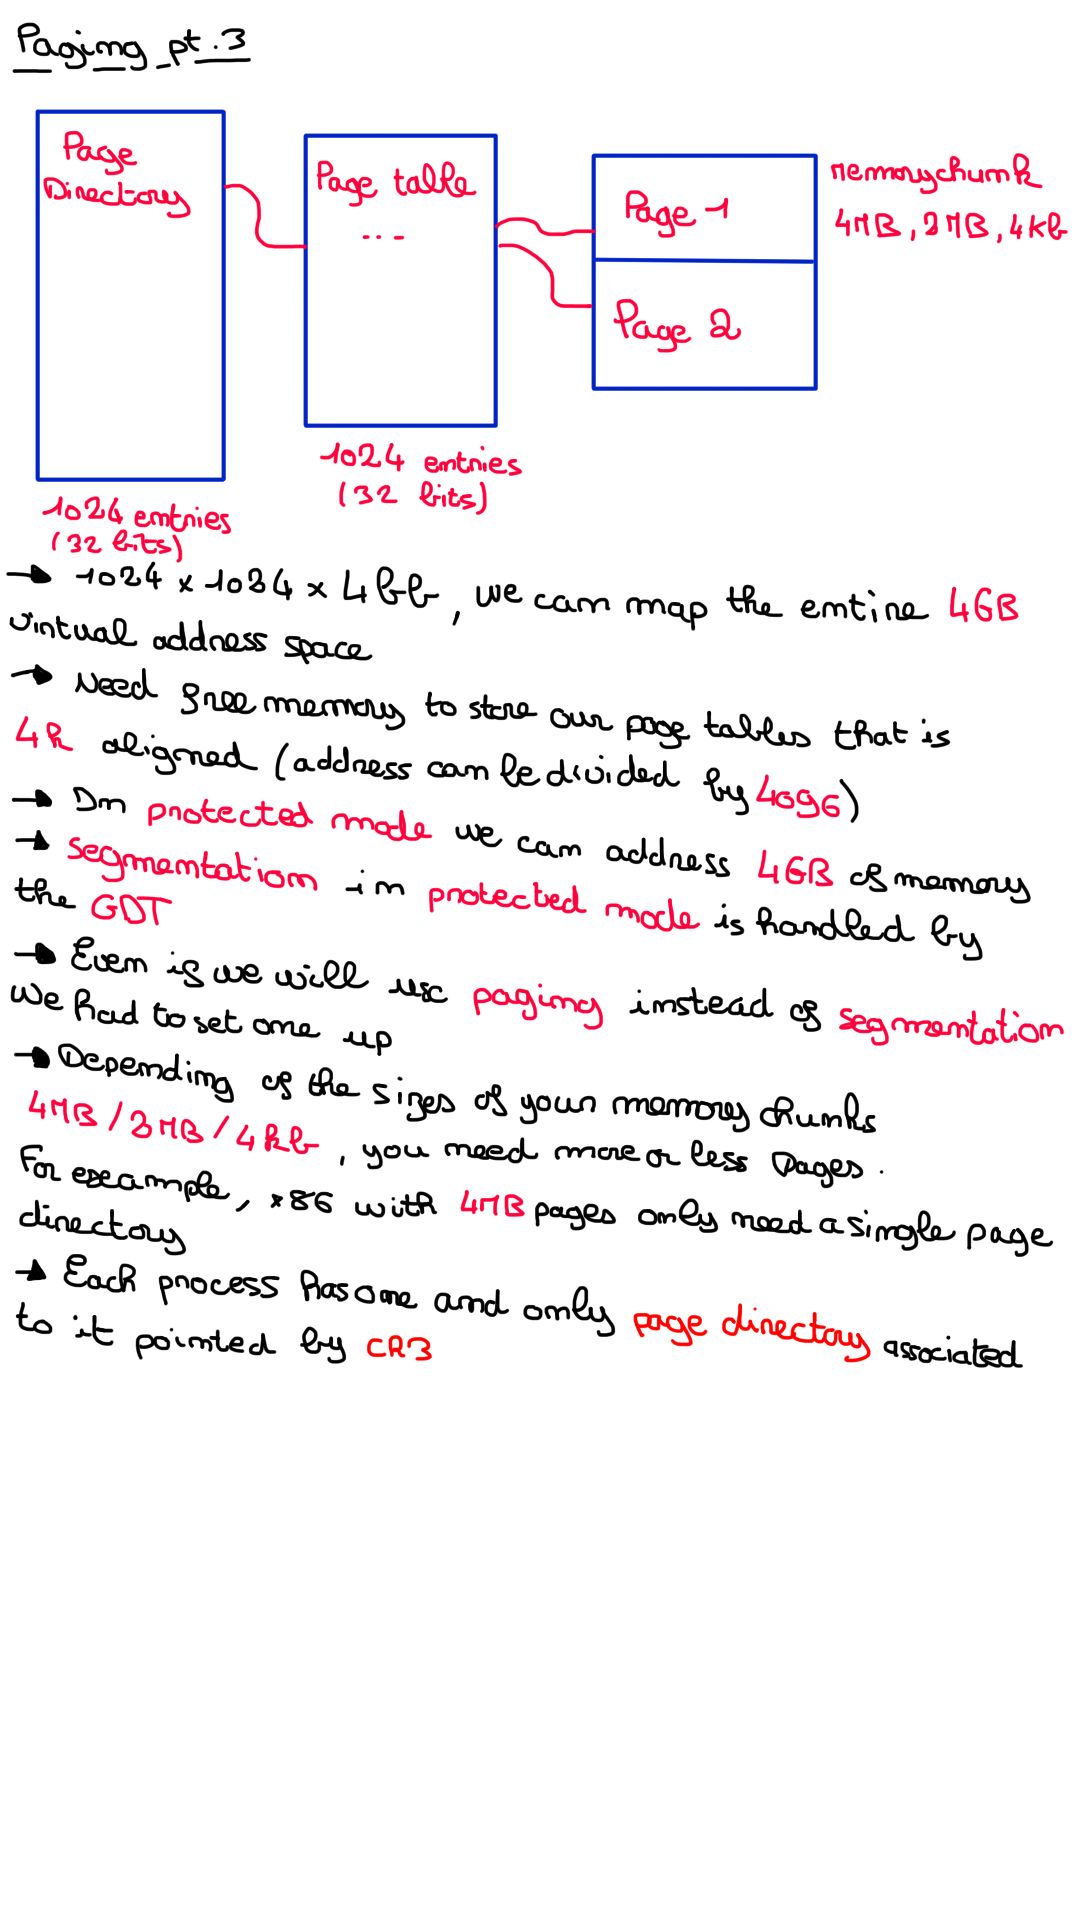 Paging pt.3
Page
Directory
Page table
...
Page 1
Page 2
memorychunk
4MB, 2MB, 4kb
1024 entries
(32 bits)
1024 entries
(32 bits)
→ 1024 x 1024 x 4kb, we can map the entire 4GB
virtual address space
→ Need free memory to store our page tables that is
4k aligned (address can be divided by 4096)
→ In protected mode we can address 4GB of memory
→ Segmentation in protected mode is handled by
the GDT
→ Even if we will use paging instead of segmentation
we had to set one up
→ Depending of the sizes of your memory chunks
4MB / 2MB / 4kb, you need more or less pages.
For example, x86 with 4MB pages only need a single page
directory
→ Each process has one and only page directory associated
to it pointed by CR3